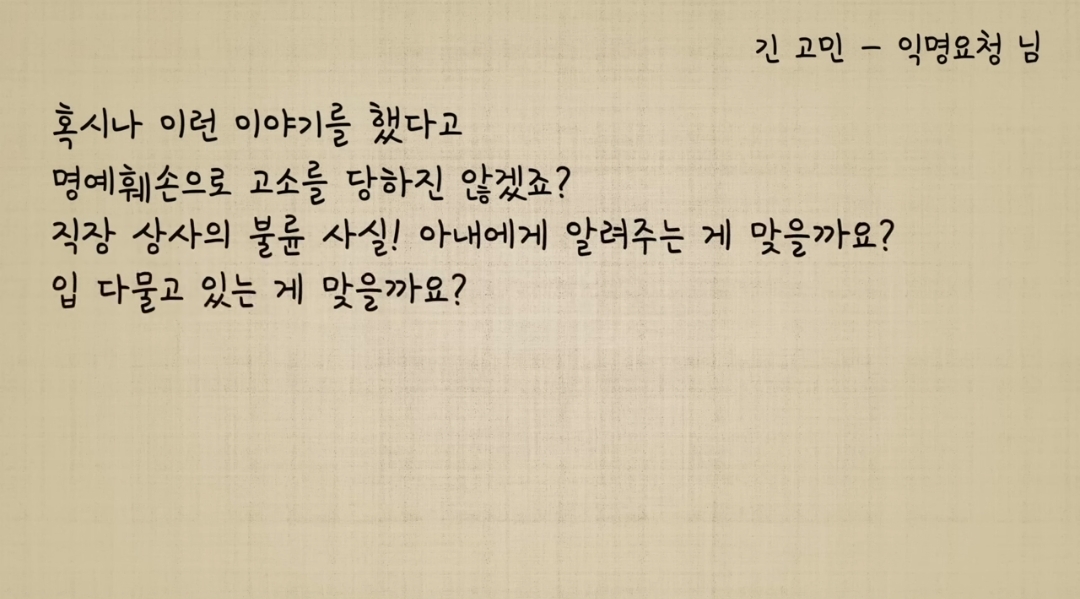 긴 고민 - 익명요청 님
혹시나 이런 이야기를 했다고
명예훼손으로 고소를 당하진 않겠죠?
직장 상사의 불륜 사실! 아내에게 알려주는 게 맞을까요?
입 다물고 있는 게 맞을까요?